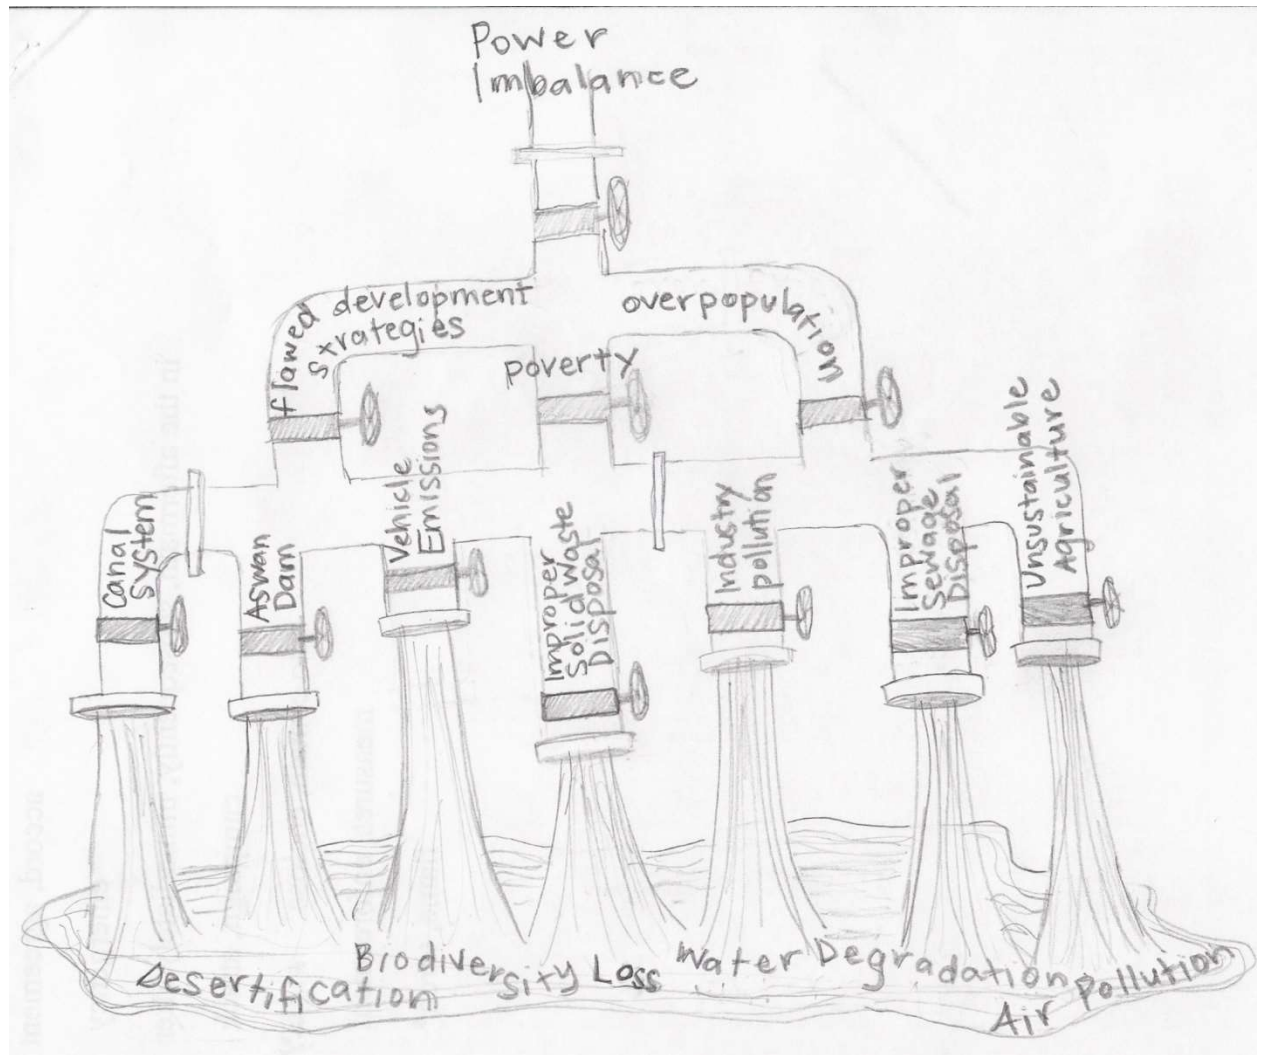 Power
Imbalance
flawed development
strategies
overpopulation
poverty
Canal
System
Aswan
Dam
Vehicle
Emissions
Improper
Solid Waste
Disposal
Industry
pollution
Improper
Sewage
Disposal
Unsustainable
Agriculture
Desertification
Biodiversity Loss
Water Degradation
Air pollution